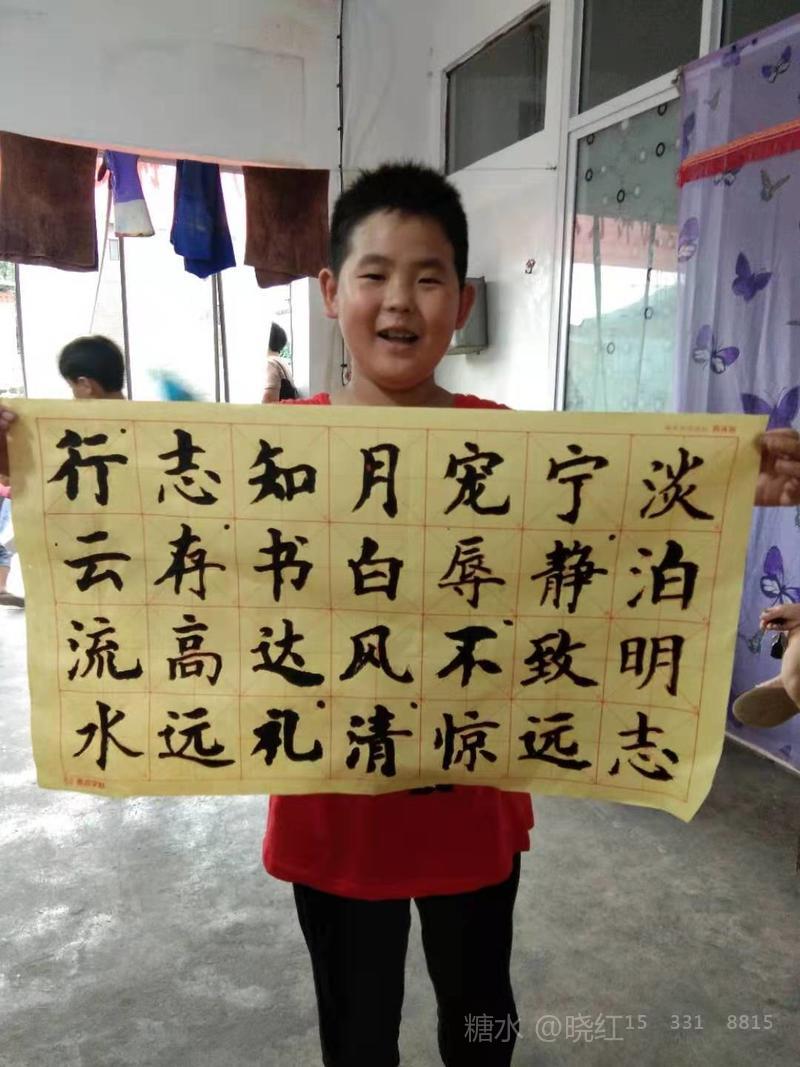 淡泊明志
宁静致远
宠辱不惊
月白风清
知书达礼
志存高远
行云流水
糖水 @晓红15 331 8815